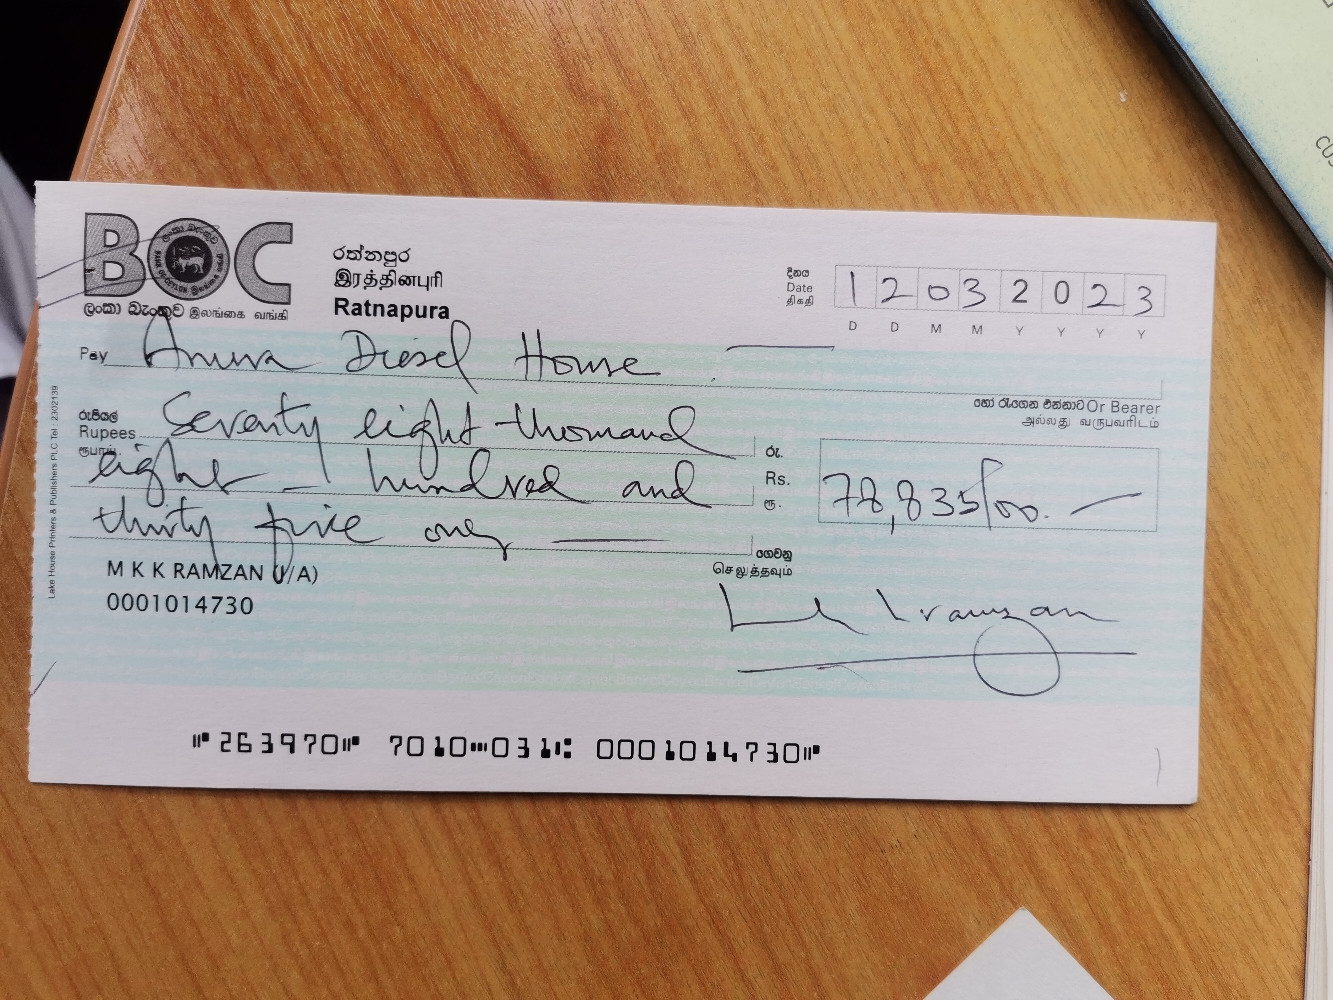 BOC
ලංකා බැංකුව இலங்கை வங்கி
රත්නපුර
இரத்தினபுரி
Ratnapura
දිනය
Date
திகதி
1 2 0 3 2 0 2 3
D D M M Y Y Y Y
Pay Anura Diesel House
හෝ රැගෙන එන්නාට Or Bearer
அல்லது வருபவரிடம்
රුපියල්
Rupees
ரூபாய்
Seventy eight thousand
eight hundred and
thirty five only
රු.
Rs.
ரூ.
78,835/00.
ගෙවනු
செலுத்தவும்
M K K RAMZAN (I/A)
0001014730
Lake House Printers & Publishers PLC Tel : 2302139
263970 7010 031 0001014730